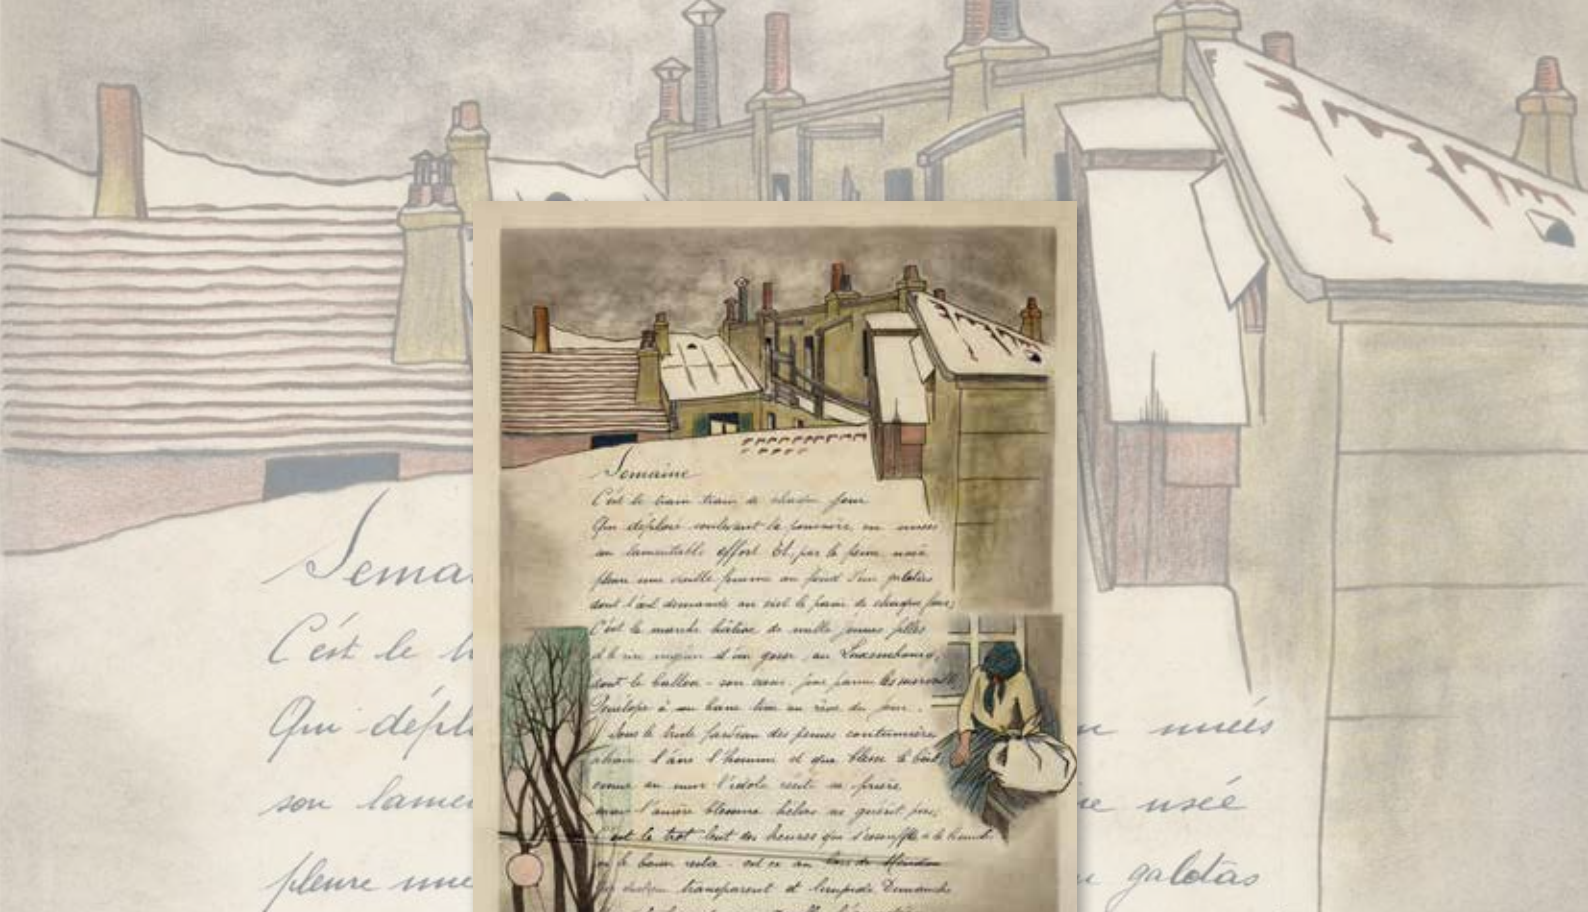 Semaine
C'est le train train de chaque jour
Qui déploie soulevant la poussière en nuées
son lamentable effort Et, par la peine usée
pleure une vieille femme au fond d'un galetas
dont l'œil demande au ciel le pain de chaque jour;
C'est la marche hâtive de mille jeunes filles
et le rire d'un gosse, au Luxembourg,
dont le ballon - son cœur - joue parmi les
Pénélope à son banc tisse un rêve du jour.
Sous le triste fardeau des peines coutumières
ahane l'âne l'homme et que blesse le bât
comme au mur l'idole récite sa prière
mais l'amère blessure hélas ne guérit pas,
C'est le trot lent des heures qui s'essouffle à la
où le beau reste - est ce au bois de Meudon
transparent et limpide Dimanche